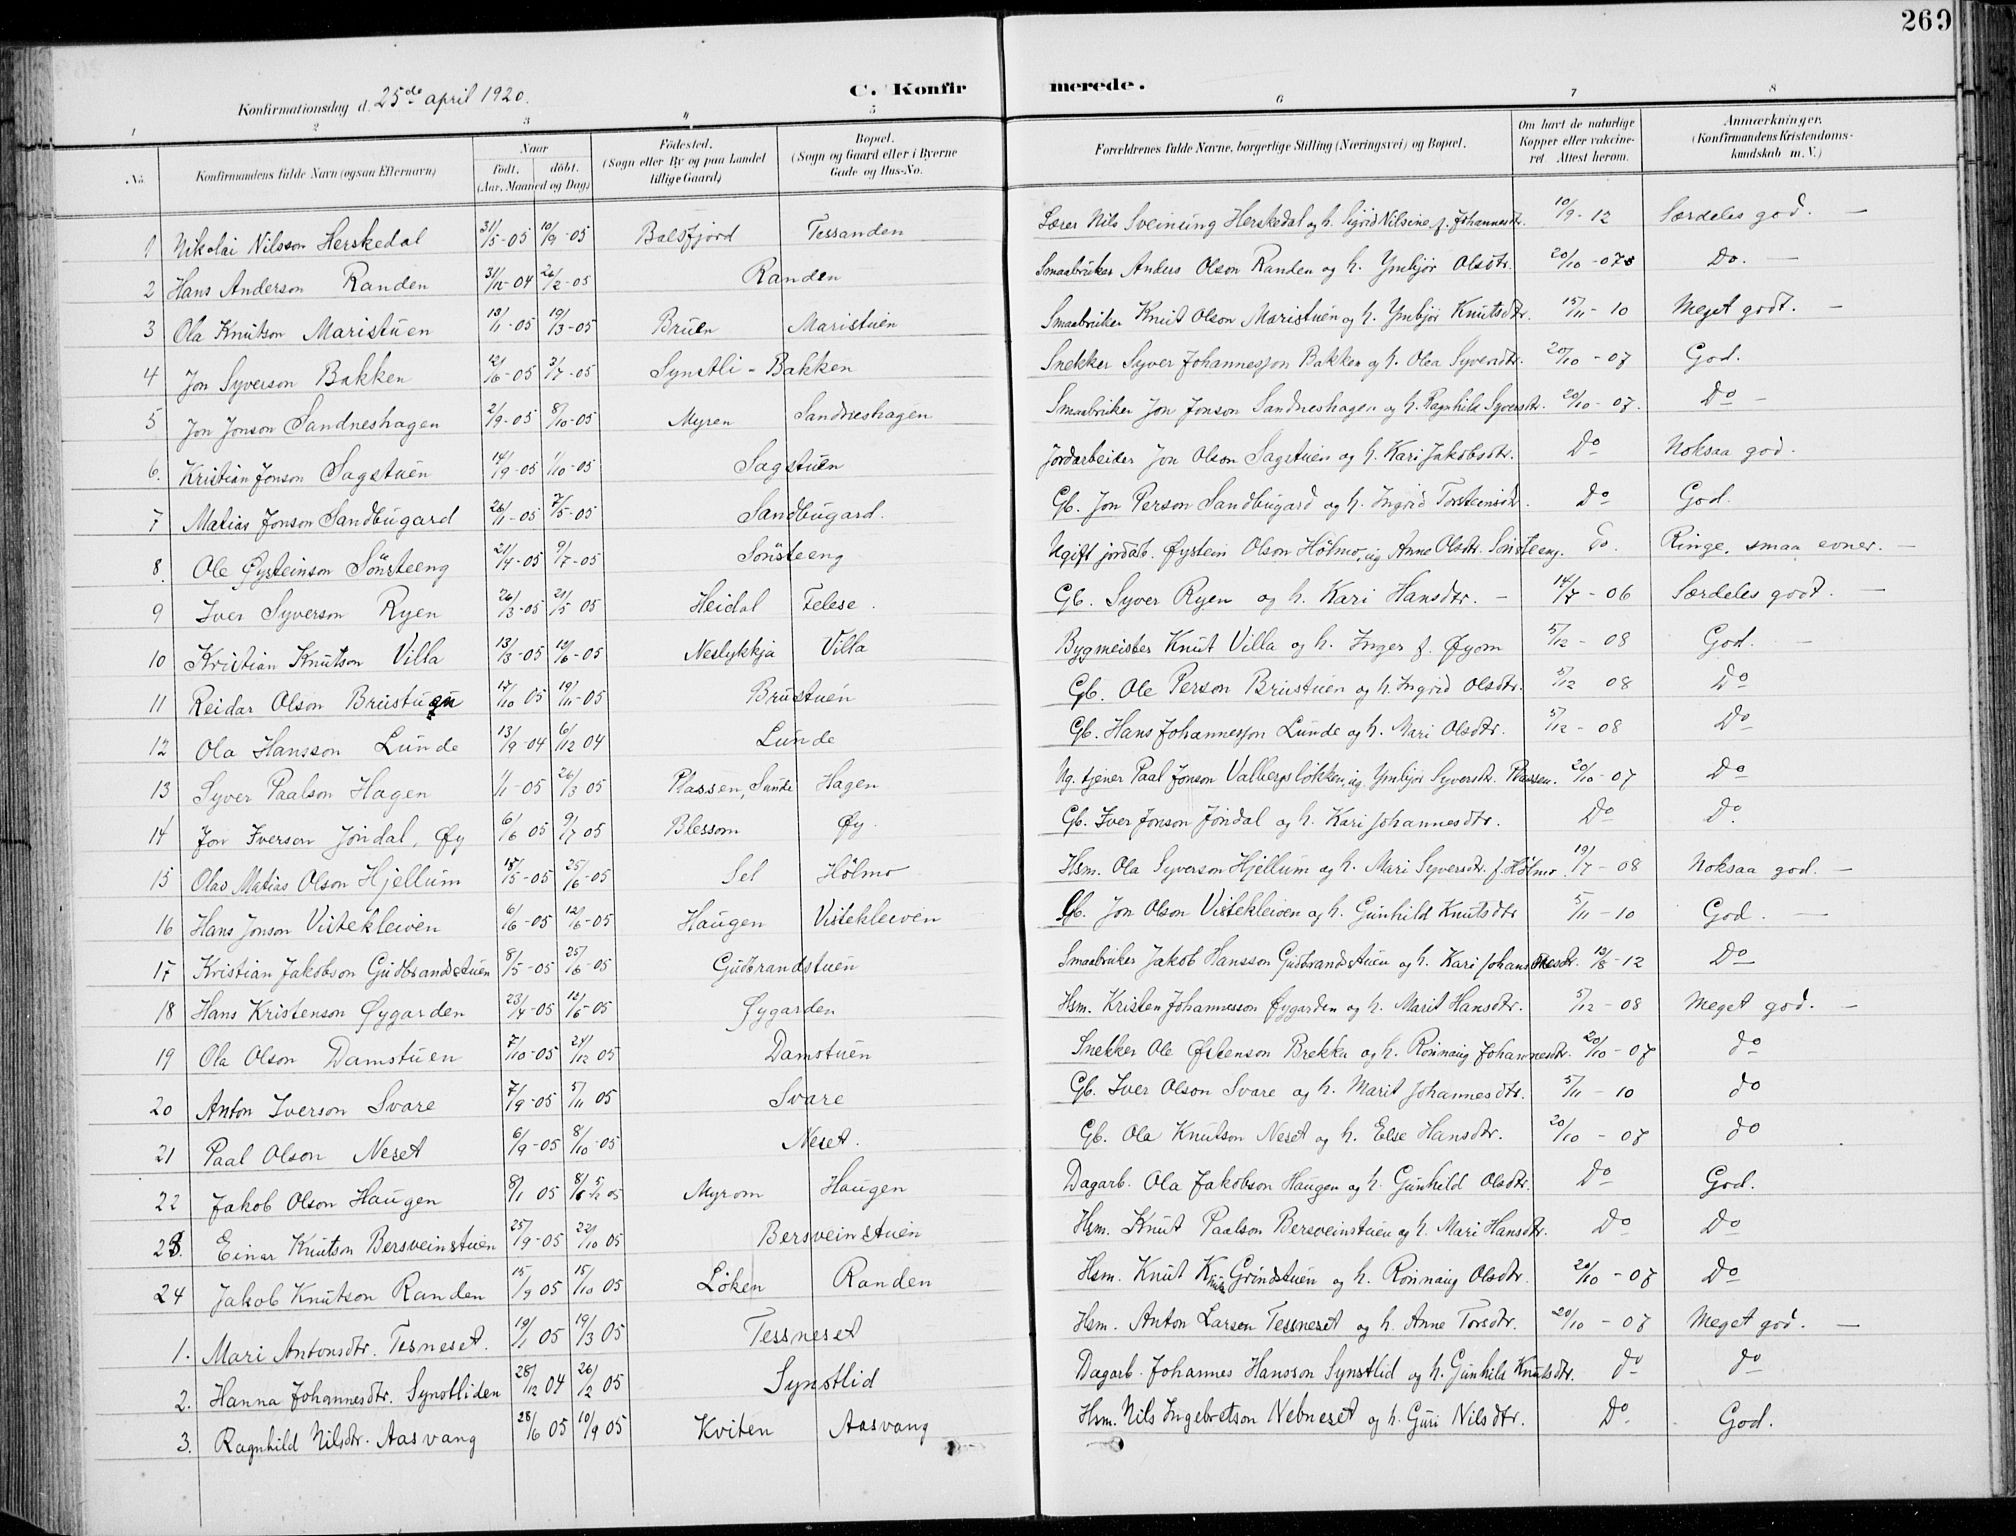 269
Konfirmationsdag d. 25de april 1920.
C. Konfirmerede.
1 2 3 4 5 6 7 8
No. Konfirmandens fulde Navn (ogsaa Efternavn) Naar født. døbt. (Aar, Maaned og Dag) Fødested. (Sogn eller By og paa Landet tillige Gaard) Bopæl. (Sogn og Gaard eller i Byerne Gade og Hus-No. Forældrenes fulde Navne, borgerlige Stilling (Næringsvei) og Bopæl. Om havt de naturlige Kopper eller vakcineret. Attest herom. Anmærkninger. (Konfirmandens Kristendomskundskab m. V.)
1 Nikolai Nilsson Herskedal 31/5-05 10/9-05 Balsfjord Tessanden Lærer Nils Sveinung Herskedal og h. Sigrid Nilsine f. Johannesdr. 10/9-12 Særdeles god. —
2 Hans Anderson Randen 31/12-04 26/2-05 Randen Smaabruker Anders Olson Randen og h. Ymbjør Olsdtr. 20/10-07 Do. —
3 Ola Knutson Maristuen 13/1-05 19/3-05 Bruen Maristuen Smaabruker Knut Olson Maristuen og h. Ymbjør Knutsdtr. 15/11-10 Meget godt. —
4 Jon Syverson Bakken 12/6-05 3/7-05 Synstli - Bakken Snekker Syver Johannesson Bakken og h. Olea Syversdtr. 20/10-07 God.
5 Jon Jonson Sandneshagen 2/9-05 8/10-05 Myren Sandneshagen Smaabruker Jon Jonson Sandneshagen og h. Ragnhild Syversdtr. 20/10-07. Do —
6. Kristian Jonson Sagstuen 14/9-05 1/10-05 Sagstuen Jordarbeider Jon Olson Sagstuen og h. Kari Jakobsdtr. Do Noksaa god.
7 Matias Jonson Sandbugard 26/1-05 7/5-05 Sandbugard. Gb. Jon Person Sandbugard og h. Ingrid Torsteinsdtr. Do God.
8. Ole Øysteinson Sönsteeng 21/4-05 9/7-05 Sönsteeng Ugift jordarb. Øystein Olson Hølmo, ug. Anne Olsdtr. Sönsteeng. Do. Ringe, smaa evner. —
9 Iver Syverson Ryen 26/3-05 21/5 05 Heidal Felese. Gb. Syver Ryen og h. Kari Hansdtr. — 14/7-06 Særdeles godt. —
10 Kristian Knutson Villa 13/3-05 12/6-05 Neslykkja Villa Bygmeister Knut Villa og h. Inger f. Øyom 5/12-08 God. —
11 Reidar Olson Brustuen 17/10 05 19/11-05 Brustuen Gb. Ole Person Brustuen og h. Ingrid Olsdtr. 5/12 08 Do
12 Ola Hansson Lunde 13/9-04 6/12 04 Lunde Gb. Hans Johannesson Lunde og h. Mari Olsdtr. 5/12-08 Do
13 Syver Paalson Hagen 1/1-05 26/3 05 Plassen, Sunde Hagen Ug. tjener Paal Jonson Valbergsløkken, ug. Ymbjør Syversdtr. Plassen. 20/10-07 Do
14 Jon Iverson Jøndal, Øy 6/6 05 9/7 05 Blessom Øy. Gb. Iver Jonson Jøndal og h. Kari Johannesdtr. Do Do.
15 Olav Matias Olson Hjellum 18/5-05 25/6-05 Sel Hølmo Hsm. Ola Syverson Hjellum og h. Mari Syversdtr. f. Hølmo. 19/7-08 Noksaa god. —
16 Hans Jonson Vistekleiven 6/6-05 12/6-05 Haugen Vistekleiven Gb. Jon Olson Vistekleiven og h. Gunhild Knutsdtr 5/11-10 God. —
17 Kristian Jakobson Gudbrandstuen 8/5-05 25/6-05 Gudbrandstuen Smaabruker Jakob Hansson Gudbrandstuen og h. Kari Johannesdtr. 12/8-12 Do
18 Hans Kristenson Øygarden 23/4-05 12/6-05 Øygarden Hsm. Kristen Johannesson Øygarden og h. Marit Hansdtr. 5/12-08 Meget god. —
19 Ola Olson Damstuen 7/10-05 24/12 05 Damstuen Snekker Ole Østenson Brekka og h. Rönnaug Johannesdtr. 20/10-07 do
20 Anton Iverson Svare 7/9-05 5/11 05 Svare Gb. Iver Olson Svare og h. Marit Johannesdtr. 5/11-10 do
21 Paal Olson Neset 6/9-05 8/10-05 Neset. Gb. Ola Knutson Neset og h. Else Hansdtr. 20/10-07 do
22 Jakob Olson Haugen 8/1 05 5/2 05 Myrom Haugen Dagarb. Ola Jakobson Haugen og h. Gunhild Olsdtr. Do God.
23. Einar Knutson Bersveinstuen 25/9-05 22/10 05 Bersveinstuen Hsm. Knut Paalson Bersveinstuen og h. Mari Hansdtr. Do Do
24 Jakob Knutson Randen 15/9 05 15/10 05 Løken Randen Hsm. Knut Knuts. Gröndstuen og h. Rönnaug Olsdtr. 20/10-07 Do
1. Mari Antonsdtr. Tesneset. 19/1 05 19/3 05 Tessneset Hsm. Anton Larsen Tessneset og h. Anne Torsdtr. 20/10-07 Meget god. —
2. Hanna Johannesdtr. Synstliden 28/12 04 26/2 05 Synstlid Dagarb. Johannes Hansson Synstlid og h. Gunhild Knutsdtr. do do
3. Ragnhild Nilsdtr. Aasvang 28/6 05 10/9 05 Kviten Aasvang Hsm. Nils Ingebretson Nebneset og h. Guri Nilsdtr. Do. God.